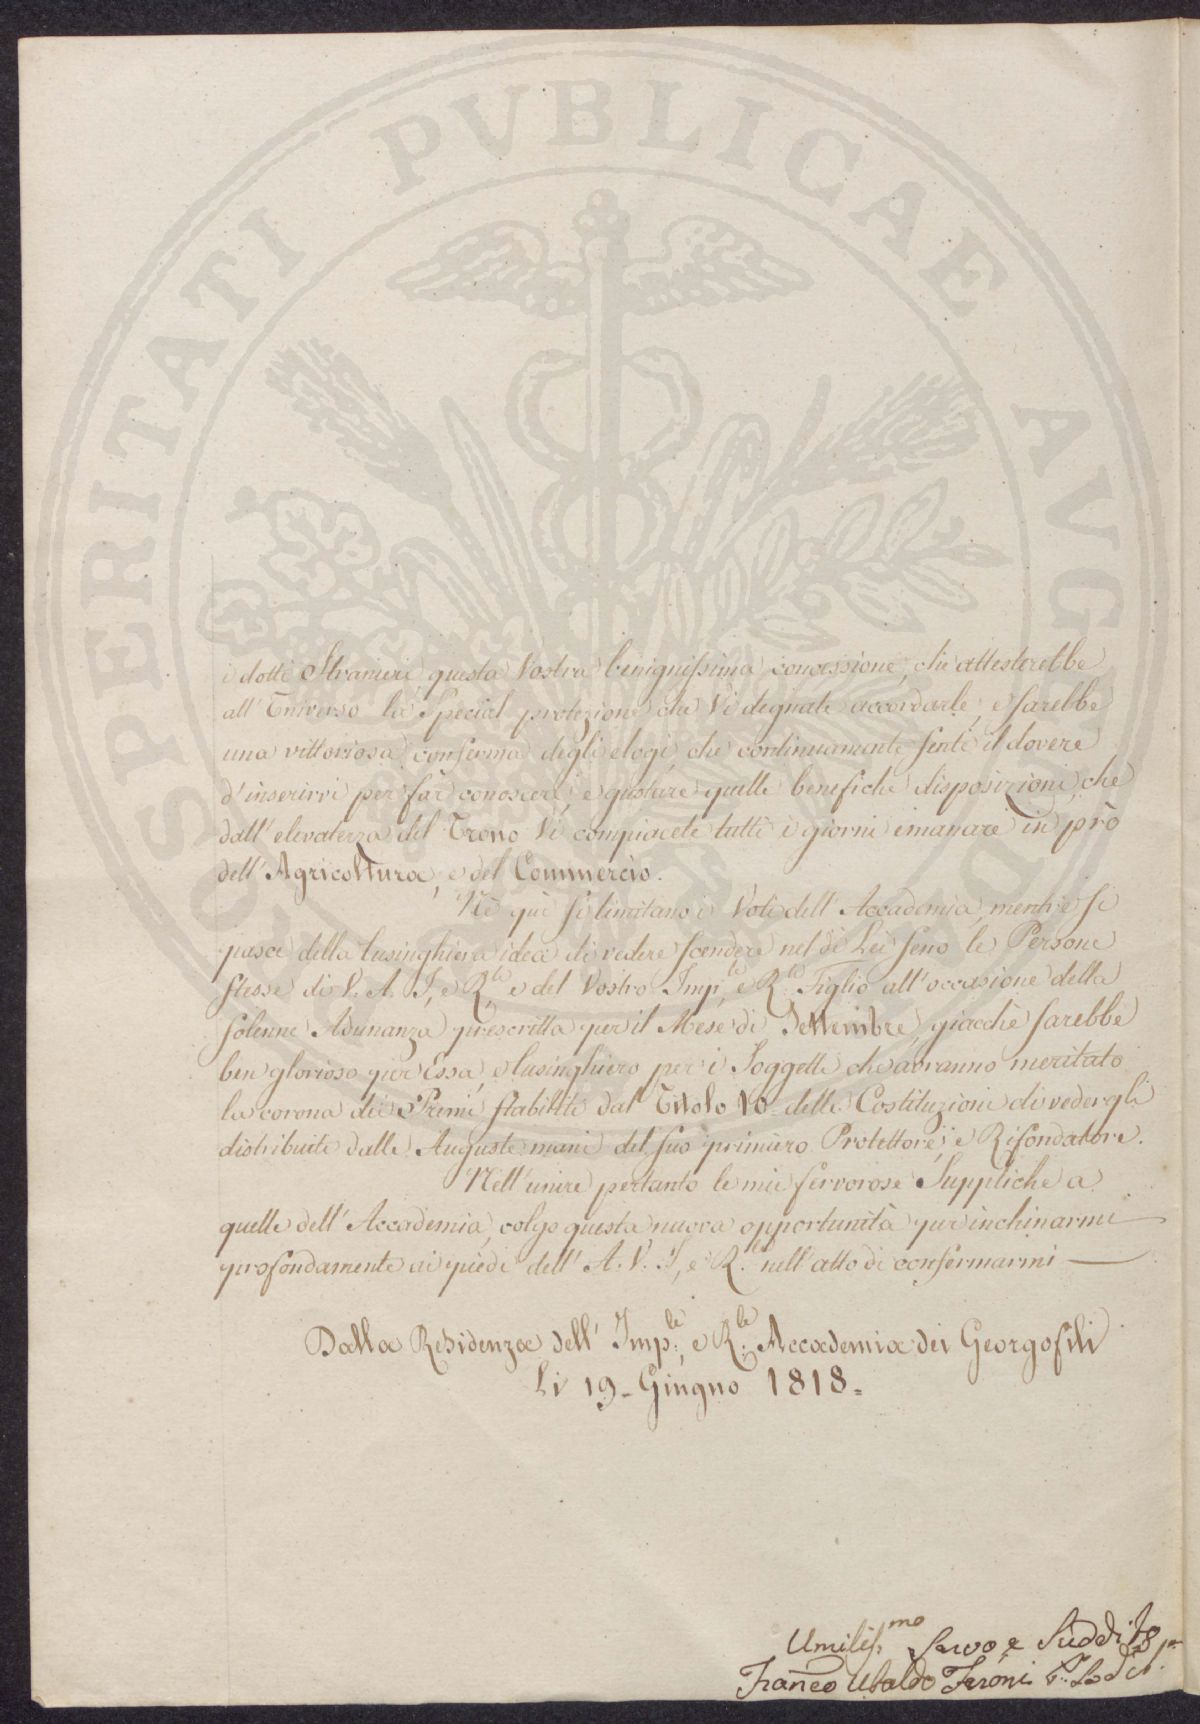 PROSPERITATI PVBLICAE AVGENDAE
i dotti Stranieri, questa Vostra benignissima concessione, che attesterebbe
all' Universo la Special protezione che Vi degnate accordarle, e sarebbe
una vittoriosa conferma degli elogi, che continuamente sente il dovere
d' inserirvi per far conoscere, e gustare quelle benefiche disposizioni, che
dall' elevatezza del Trono Vi compiacete tutti i giorni emanare in prò
dell' Agricoltura, e del Commercio.
Nè quì si limitano i Voti dell' Accademia, mentre si
pasce della lusinghiera idea di vedere scendere nel di Lei seno le Persone
stesse di V. A. I., e R.le e del Vostro Imp.le e R.le Figlio all' occasione della
solenne Adunanza prescritta per il Mese di Settembre, giacchè sarebbe
ben glorioso per Essa, e lusinghiero per i Soggetti che avranno meritato
la corona dei Premi stabiliti dal Titolo 10 delle Costituzioni di vedergli
distribuiti dalle Auguste mani del suo primiero Protettore, e Rifondatore.
Nell' unire pertanto le mie fervorose Suppliche a
quelle dell' Accademia, colgo questa nuova opportunità per inchinarmi
profondamente ai piedi dell' A. V. I., e R.le nell' atto di confermarmi —
Dalla Residenza dell' Imp.le, e R.le Accademia dei Georgofili
Li 19 - Giugno 1818 =
Umiliss.mo Servo, e Suddito
Franco Ubaldo Feroni